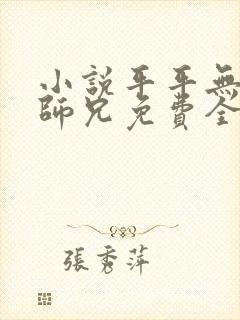 小說平平無
師兄免費全
張秀萍